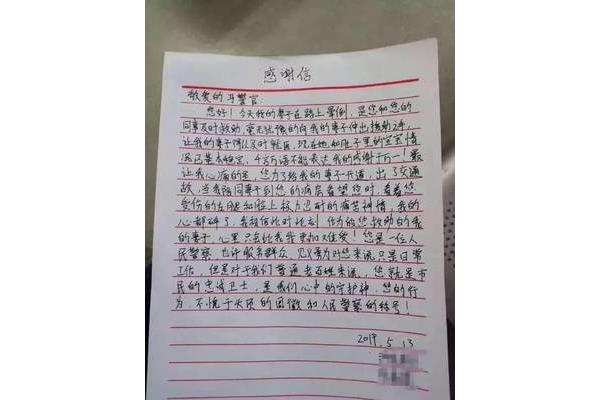 感谢信
敬爱的冯警官:
您好!今天我的妻子在路上晕倒,是您和您的
同事及时救助,毫无犹豫的向我的妻子伸出援助之手,
让我的妻子得以及时就医,现在她和肚子里的宝宝情
况已基本稳定,千言万语不能表达我的感谢于万一!最
让我心痛的是,您为了给我的妻子开道,出了交通
故,当我陪同妻子到您的病房看望您时,看着您
受伤的左腿和脸上极力忍耐的痛苦神情,我的
心都碎了,我相信此时此刻作为被您救助的我
的妻子,心里只会比我更加难受!您是一位人
民警察,也许服务群众,见义勇为对您来说只是日常
工作,但是对于我们普通老百姓来说,您就是市
民的忠诚卫士,是我们心中的守护神,您的行
为,不愧于头顶的国徽和人民警察的称号!
2019.5.13